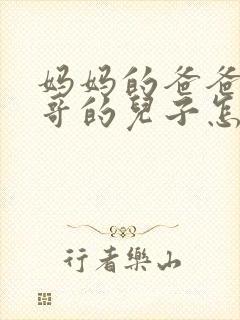 妈妈的爸爸
哥的兒子怎
行者樂山